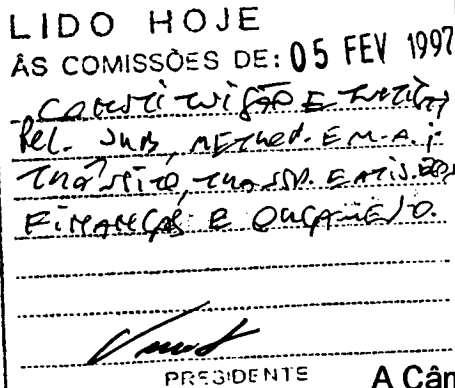 LIDO HOJE
ÀS COMISSÕES DE: 05 FEV 1997
CONSTITUIÇÃO E JUSTIÇA
Pol. Urb, METROP. E M.A.;
TRÂNSITO, TRANSP. E ATIV. ECO,
FINANÇAS E ORÇAMENTO.
PRESIDENTE
A Câm